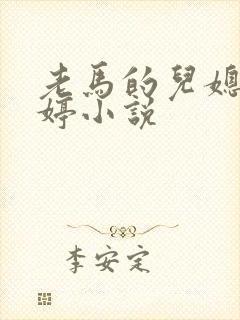 老馬的兒媳
婷小説
李安定